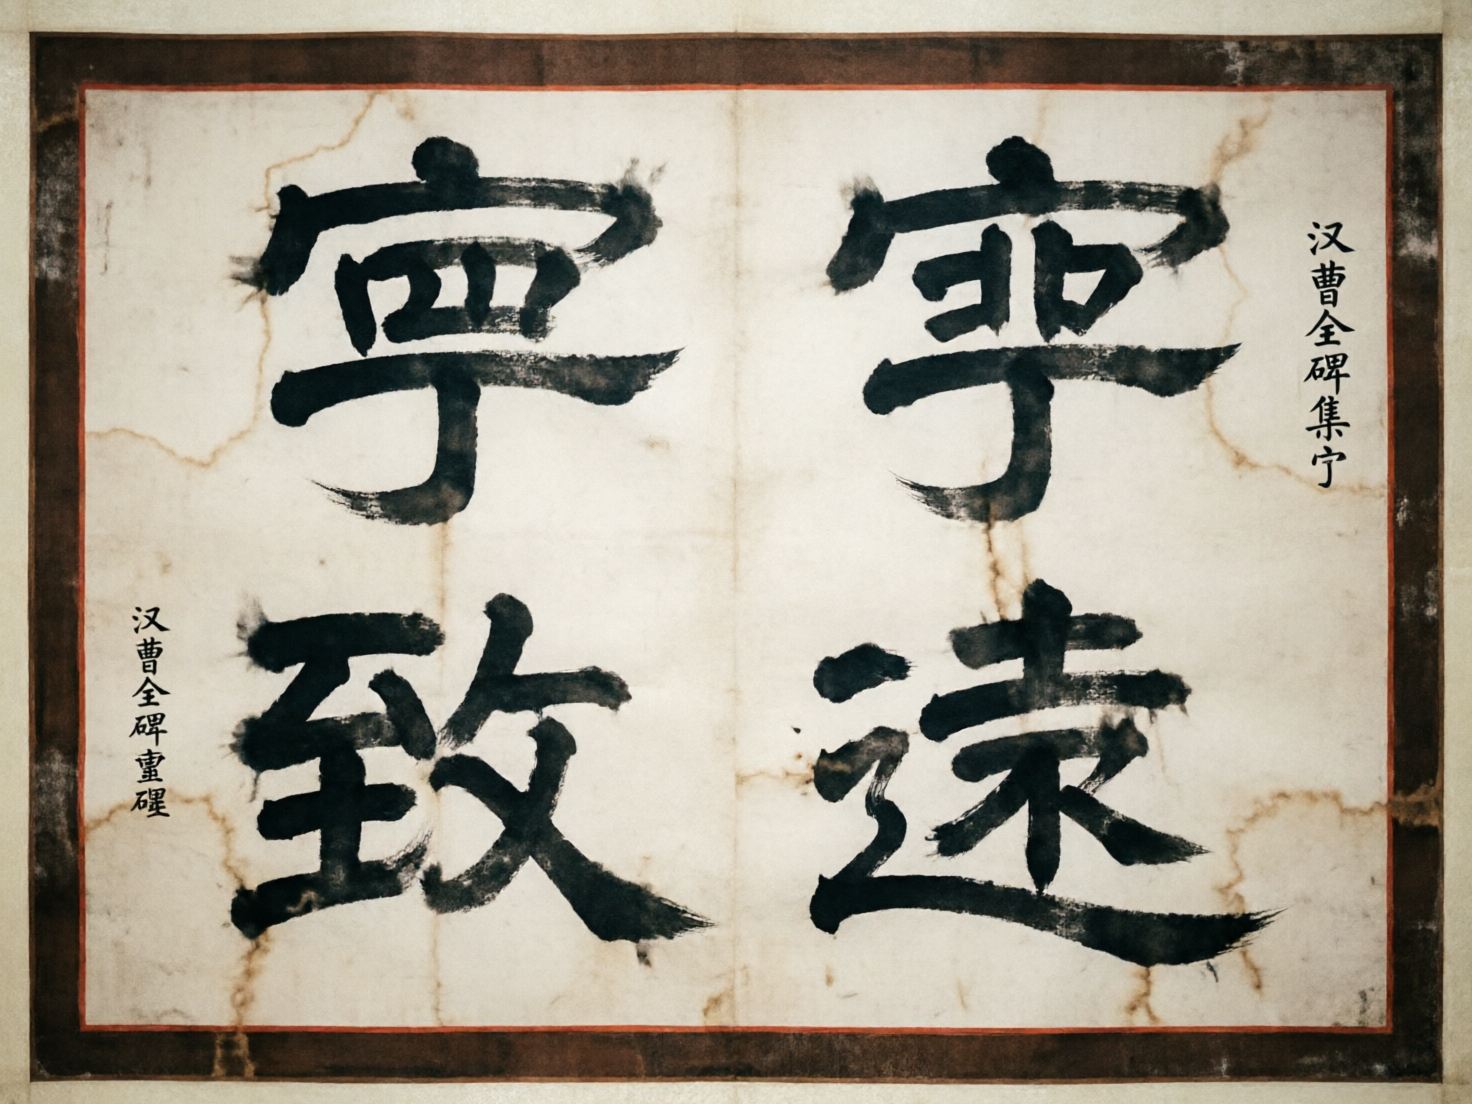 汉曹全碑集宁
寧遠
寧致
汉曹全碑